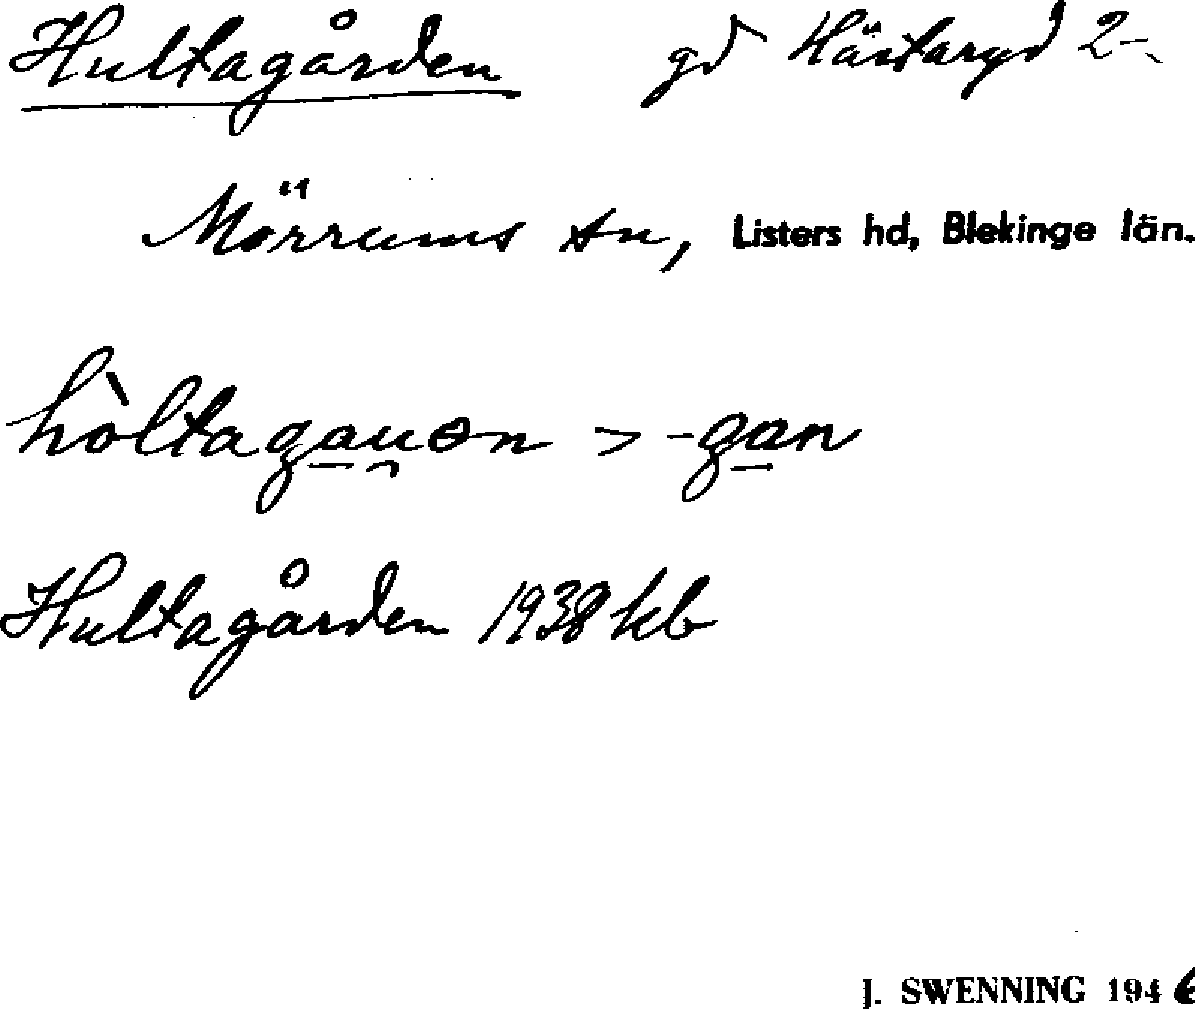 Hultagården gd Hästaryd 2-
Mörrums sn, Listers hd, Blekinge län.
hòltaga̲u̯ən > -ga̲n
Hultagården 1938 kb
J. SWENNING 1946